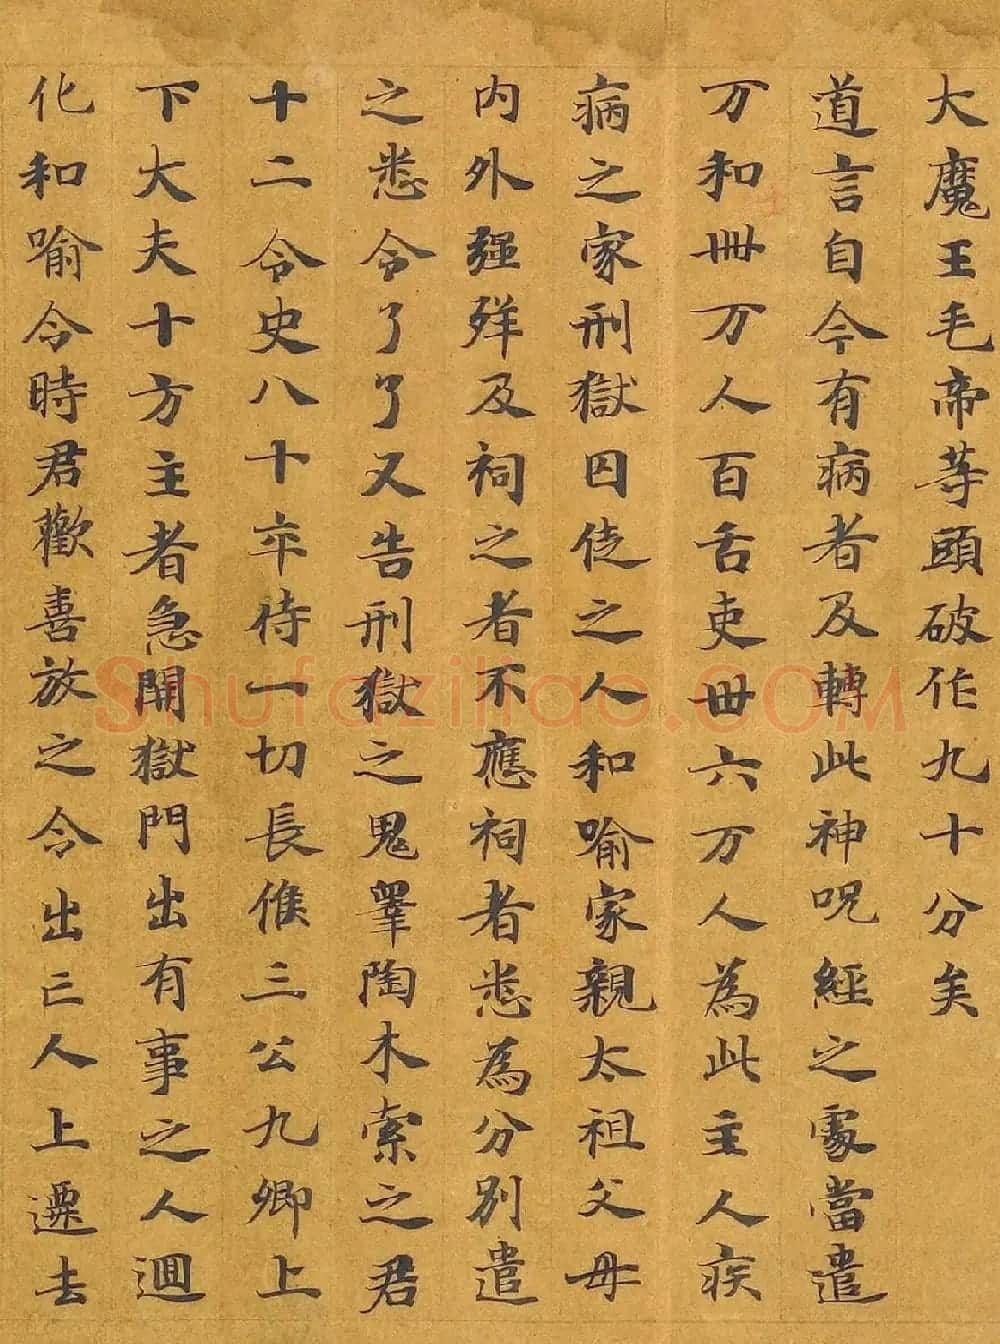 大魔王毛帝等頭破作九十分矣
道言自今有病者及轉此神呪經之處當遣
万和卌万人百舌吏卌六万人為此主人疾
病之家刑獄囚徒之人和喻家親太祖父母
内外強殃及祠之者不應祠者悉為分別遣
之悉令了了又告刑獄之鬼睪陶木索之君
十二令史八十卒待一切長惟三公九卿上
下大夫十方主者急開獄門出有事之人迴
化和喻令時君歡喜放之令出亡人上遷去
Shufaziliao.COM